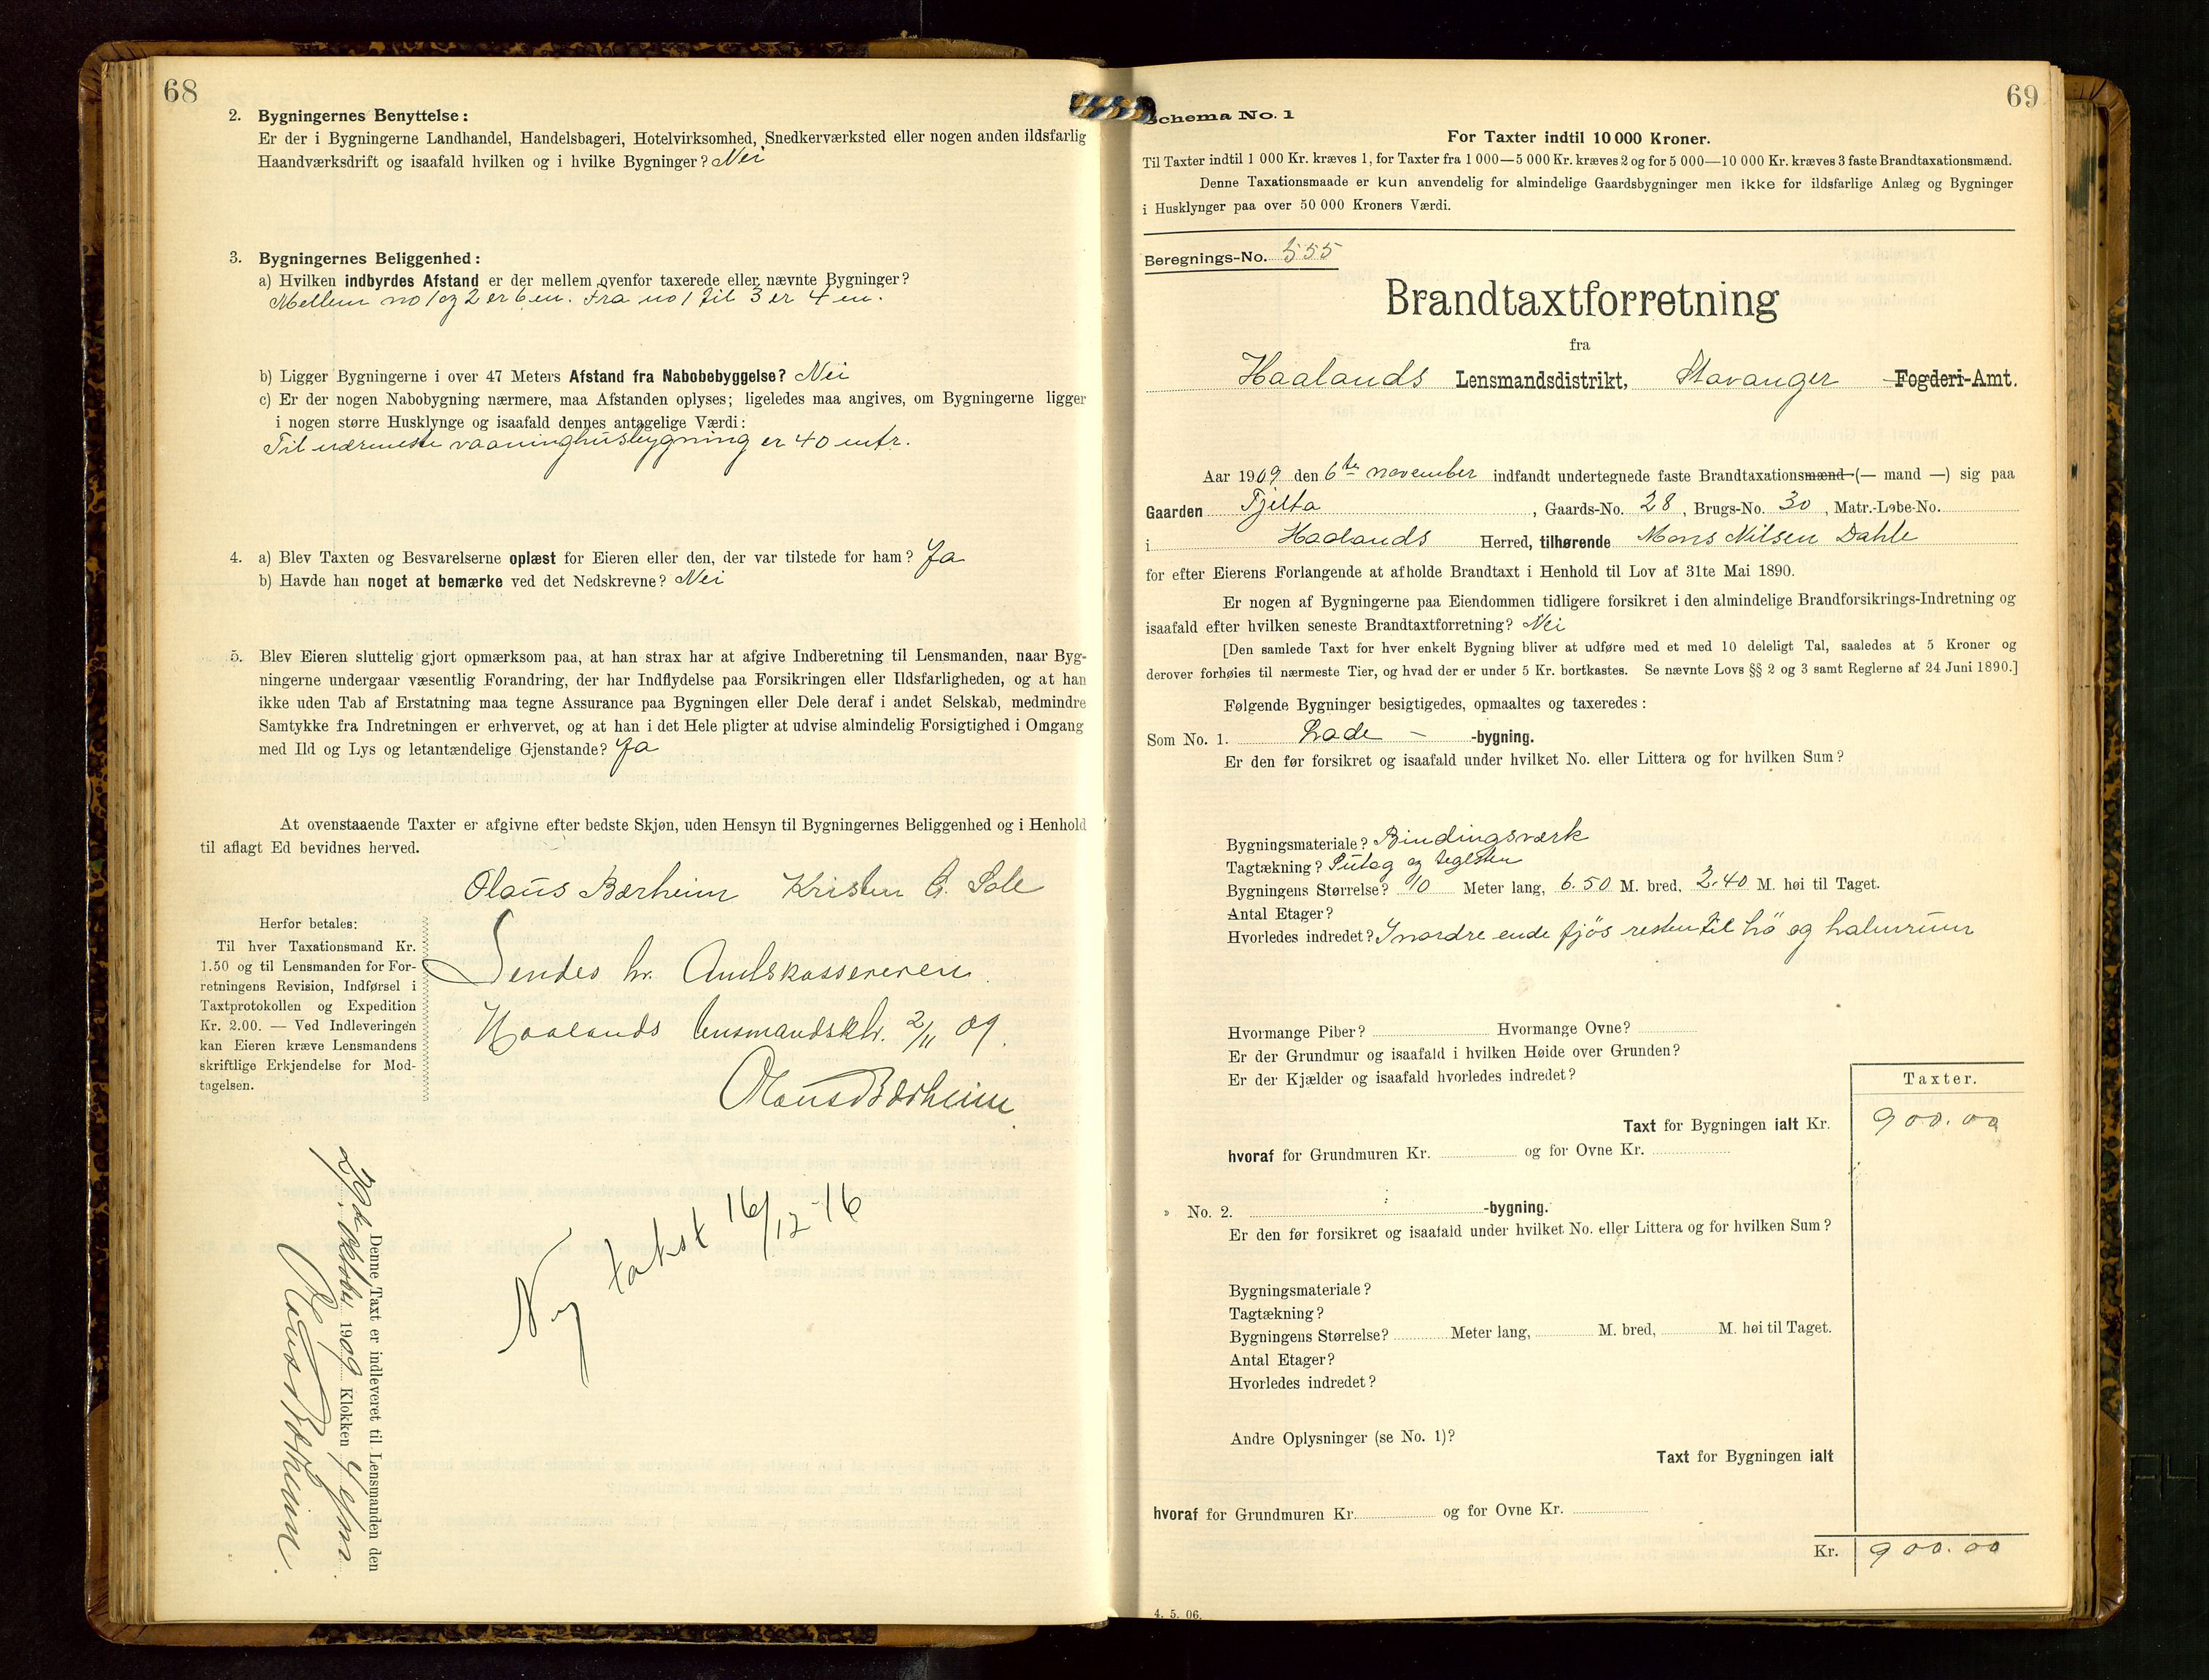 68
2. Bygningernes Benyttelse:
Er der i Bygningerne Landhandel, Handelsbageri, Hotelvirksomhed, Snedkerværksted eller nogen anden ildsfarlig
Haandværksdrift og isaafald hvilken og i hvilke Bygninger? Nei
3. Bygningernes Beliggenhed:
a) Hvilken indbyrdes Afstand er der mellem ovenfor taxerede eller nævnte Bygninger?
Mellem no 1 og 2 er 6 m. Fra no 1 til 3 er 4 m.
b) Ligger Bygningerne i over 47 Meters Afstand fra Nabobebyggelse? Nei
c) Er der nogen Nabobygning nærmere, maa Afstanden oplyses; ligeledes maa angives, om Bygningerne ligger
i nogen større Husklynge og isaafald dennes antagelige Værdi:
Til nærmeste vaaninghusbygning er 40 mtr.
4. a) Blev Taxten og Besvarelserne oplæst for Eieren eller den, der var tilstede for ham? Ja
b) Havde han noget at bemærke ved det Nedskrevne? Nei
5. Blev Eieren sluttelig gjort opmærksom paa, at han strax har at afgive Indberetning til Lensmanden, naar Byg-
ningerne undergaar væsentlig Forandring, der har Indflydelse paa Forsikringen eller Ildsfarligheden, og at han
ikke uden Tab af Erstatning maa tegne Assurance paa Bygningen eller Dele deraf i andet Selskab, medmindre
Samtykke fra Indretningen er erhvervet, og at han i det Hele pligter at udvise almindelig Forsigtighed i Omgang
med Ild og Lys og letantændelige Gjenstande? Ja
At ovenstaaende Taxter er afgivne efter bedste Skjøn, uden Hensyn til Bygningernes Beliggenhed og i Henhold
til aflagt Ed bevidnes herved.
Olaus Bærheim Kristen G. Sole
Herfor betales:
Til hver Taxationsmand Kr.
1.50 og til Lensmanden for For-
retningens Revision, Indførsel i
Taxtprotokollen og Expedition
Kr. 2.00. — Ved Indleveringen
kan Eieren kræve Lensmandens
skriftlige Erkjendelse for Mod-
tagelsen.
Sendes hr. Amtskassereren
Haalands lensmandsktr. 2/11 09.
Olaus Bærheim
Ny takst 16/12-16
Denne Taxt er indleveret til Lensmanden den
oktober 1909 Klokken 4 efm.
Olaus Bærheim
69
Schema No. 1
For Taxter indtil 10 000 Kroner.
Til Taxter indtil 1 000 Kr. kræves 1, for Taxter fra 1 000—5 000 Kr. kræves 2 og for 5 000—10 000 Kr. kræves 3 faste Brandtaxationsmænd.
Denne Taxationsmaade er kun anvendelig for almindelige Gaardsbygninger men ikke for ildsfarlige Anlæg og Bygninger
i Husklynger paa over 50 000 Kroners Værdi.
Beregnings-No. 555
Brandtaxtforretning
fra
Haalands Lensmandsdistrikt, Stavanger Fogderi-Amt.
Aar 1909 den 6te november indfandt undertegnede faste Brandtaxationsmænd (— mand —) sig paa
Gaarden Tjelta, Gaards-No. 28, Brugs-No. 30, Matr.-Løbe-No.
i Haalands Herred, tilhørende Mons Nilsen Dahle
for efter Eierens Forlangende at afholde Brandtaxt i Henhold til Lov af 31te Mai 1890.
Er nogen af Bygningerne paa Eiendommen tidligere forsikret i den almindelige Brandforsikrings-Indretning og
isaafald efter hvilken seneste Brandtaxtforretning? Nei
[Den samlede Taxt for hver enkelt Bygning bliver at udføre med et med 10 deleligt Tal, saaledes at 5 Kroner og
derover forhøies til nærmeste Tier, og hvad der er under 5 Kr. bortkastes. Se nævnte Lovs §§ 2 og 3 samt Reglerne af 24 Juni 1890.]
Følgende Bygninger besigtigedes, opmaaltes og taxeredes:
Som No. 1. Lade - -bygning.
Er den før forsikret og isaafald under hvilket No. eller Littera og for hvilken Sum?
Bygningsmateriale? Bindingsværk
Tagtækning? Sutag og teglsten
Bygningens Størrelse? 10 Meter lang, 6.50 M. bred, 2.40 M. høi til Taget.
Antal Etager?
Hvorledes indredet? I nordre ende fjös resten til hö og halmrum
Hvormange Piber? Hvormange Ovne?
Er der Grundmur og isaafald i hvilken Høide over Grunden?
Er der Kjælder og isaafald hvorledes indredet?
Taxter.
Taxt for Bygningen ialt Kr. 900.00
hvoraf for Grundmuren Kr. og for Ovne Kr.
» No. 2. -bygning.
Er den før forsikret og isaafald under hvilket No. eller Littera og for hvilken Sum?
Bygningsmateriale?
Tagtækning?
Bygningens Størrelse? Meter lang, M. bred, M. høi til Taget.
Antal Etager?
Hvorledes indredet?
Andre Oplysninger (se No. 1)?
Taxt for Bygningen ialt
hvoraf for Grundmuren Kr. og for Ovne Kr.
Kr. 900.00
4. 5. 06.